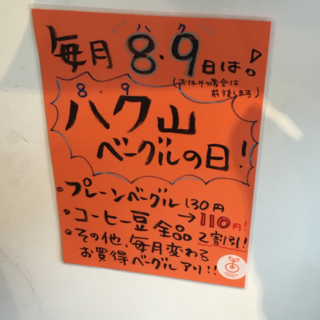 ハク
毎月8.9日は。!
(お休みの場合は
前後します)
8.9
ハク山
ベーグルの日!
・プレーンベーグル 130円
→110円!
・コーヒー豆全品 2割引!
・その他、毎月変わる
お買得ベーグルアリ!!